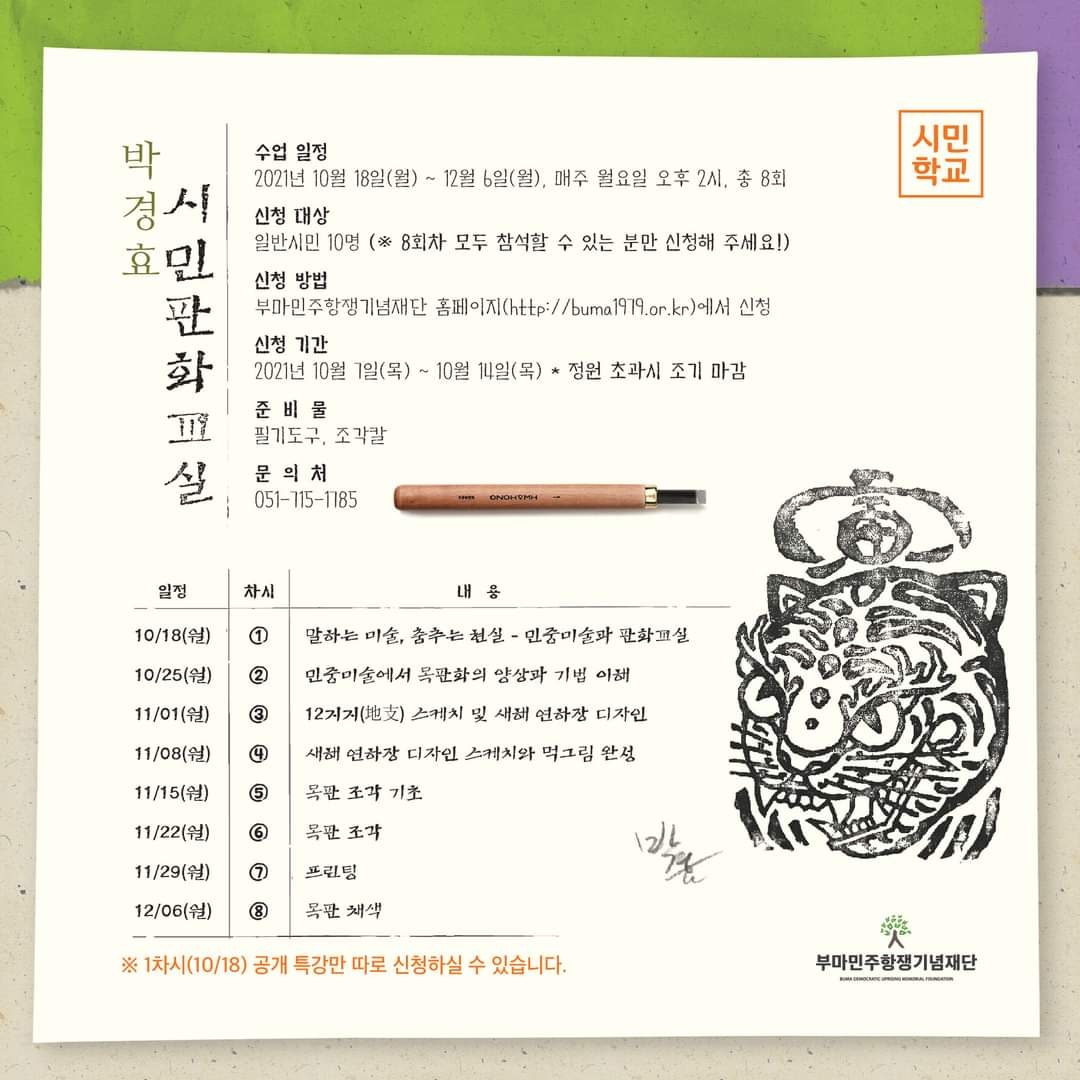 시민
학교
박경효
시민판화교실
수업 일정
2021년 10월 18일(월) ~ 12월 6일(월), 매주 월요일 오후 2시, 총 8회
신청 대상
일반시민 10명 (※ 8회차 모두 참석할 수 있는 분만 신청해 주세요!)
신청 방법
부마민주항쟁기념재단 홈페이지(http://buma1979.or.kr)에서 신청
신청 기간
2021년 10월 7일(목) ~ 10월 14일(목) * 정원 초과시 조기 마감
준 비 물
필기도구, 조각칼
문 의 처
051-715-1785
HWAHONG
일정 차시 내 용
10/18(월) ① 말하는 미술, 춤추는 현실 - 민중미술과 판화교실
10/25(월) ② 민중미술에서 목판화의 양상과 기법 이해
11/01(월) ③ 12지지(地支) 스케치 및 새해 연하장 디자인
11/08(월) ④ 새해 연하장 디자인 스케치와 먹그림 완성
11/15(월) ⑤ 목판 조각 기초
11/22(월) ⑥ 목판 조각
11/29(월) ⑦ 프린팅
12/06(월) ⑧ 목판 채색
박경효
※ 1차시(10/18) 공개 특강만 따로 신청하실 수 있습니다.
부마민주항쟁기념재단
BUMA DEMOCRATIC UPRISING MEMORIAL FOUNDATION